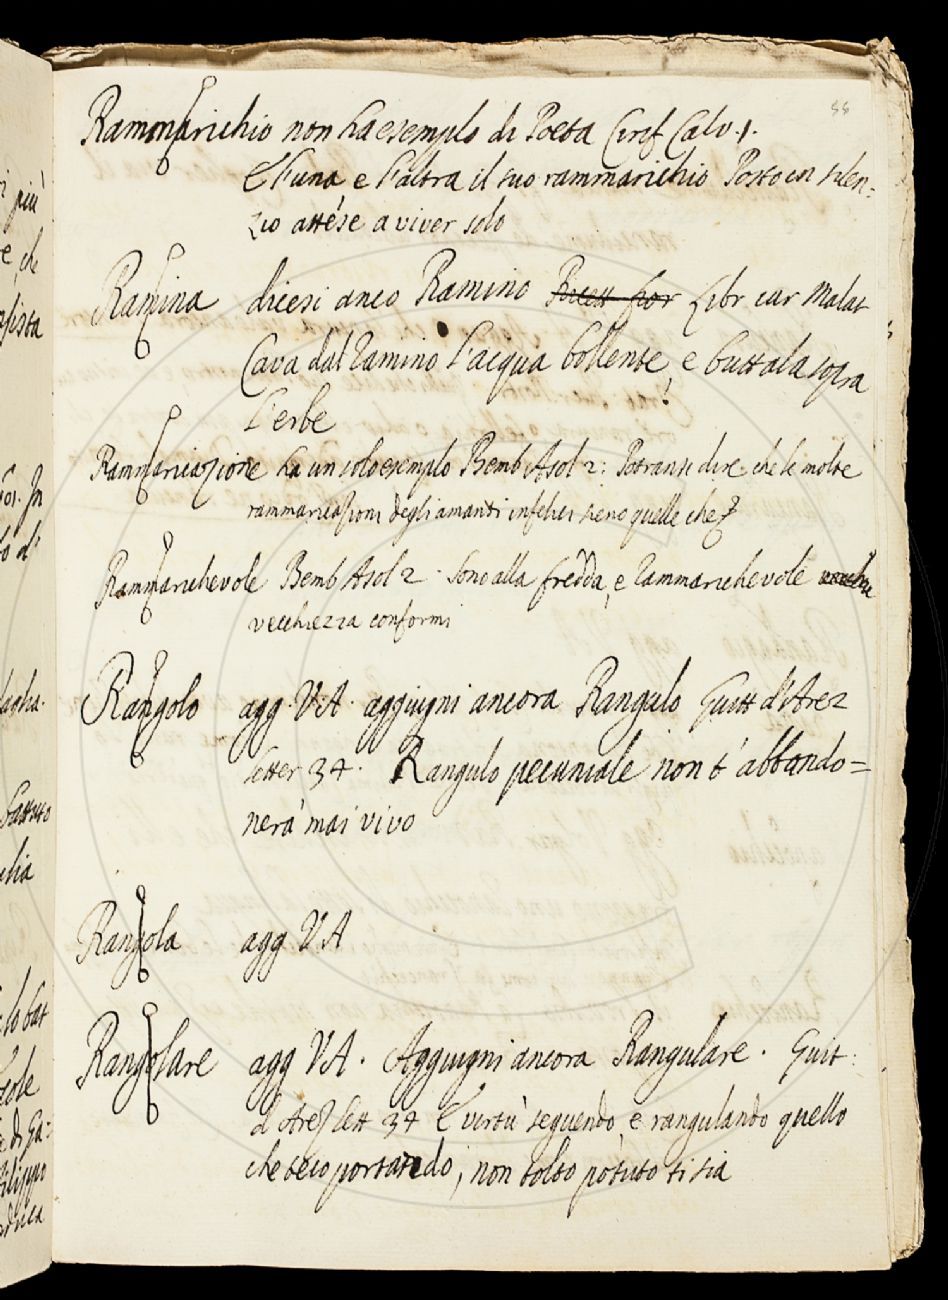 Rammarichio non ha esemplo di Poeta Cirif Calv. 1.
E l'una e l'altra il suo rammarichio Posto in silen-
zio attése a viver solo
Ramina dicesi anco Ramino Ricett fior Libr cur Malat
Cava dal ramino l'acqua bollente, e buttala sopra
l'erbe
Rammaricazione ha un solo esemplo Bemb Asol 2: Potransi dire che le molte
rammaricazioni degli amanti infelici sieno quelle che
Rammarichevole Bemb Asol 2. Sono alla fredda, e rammarichevole
vecchiezza conformi
Rangolo agg. V.A. aggiugni ancora Rangulo Guitt d'Arez
letter 34. Rangulo pecuniale non t'abbando=
nerà mai vivo
Rangola agg V A
Rangolare agg V A. Aggiugni ancora Rangulare. Guitt:
d Arez lett 34 E vertù seguendo e rangulando quello
che teco portando, non tolto potuto ti sia
più
che
In
battuto
lo bat
di
Filippo